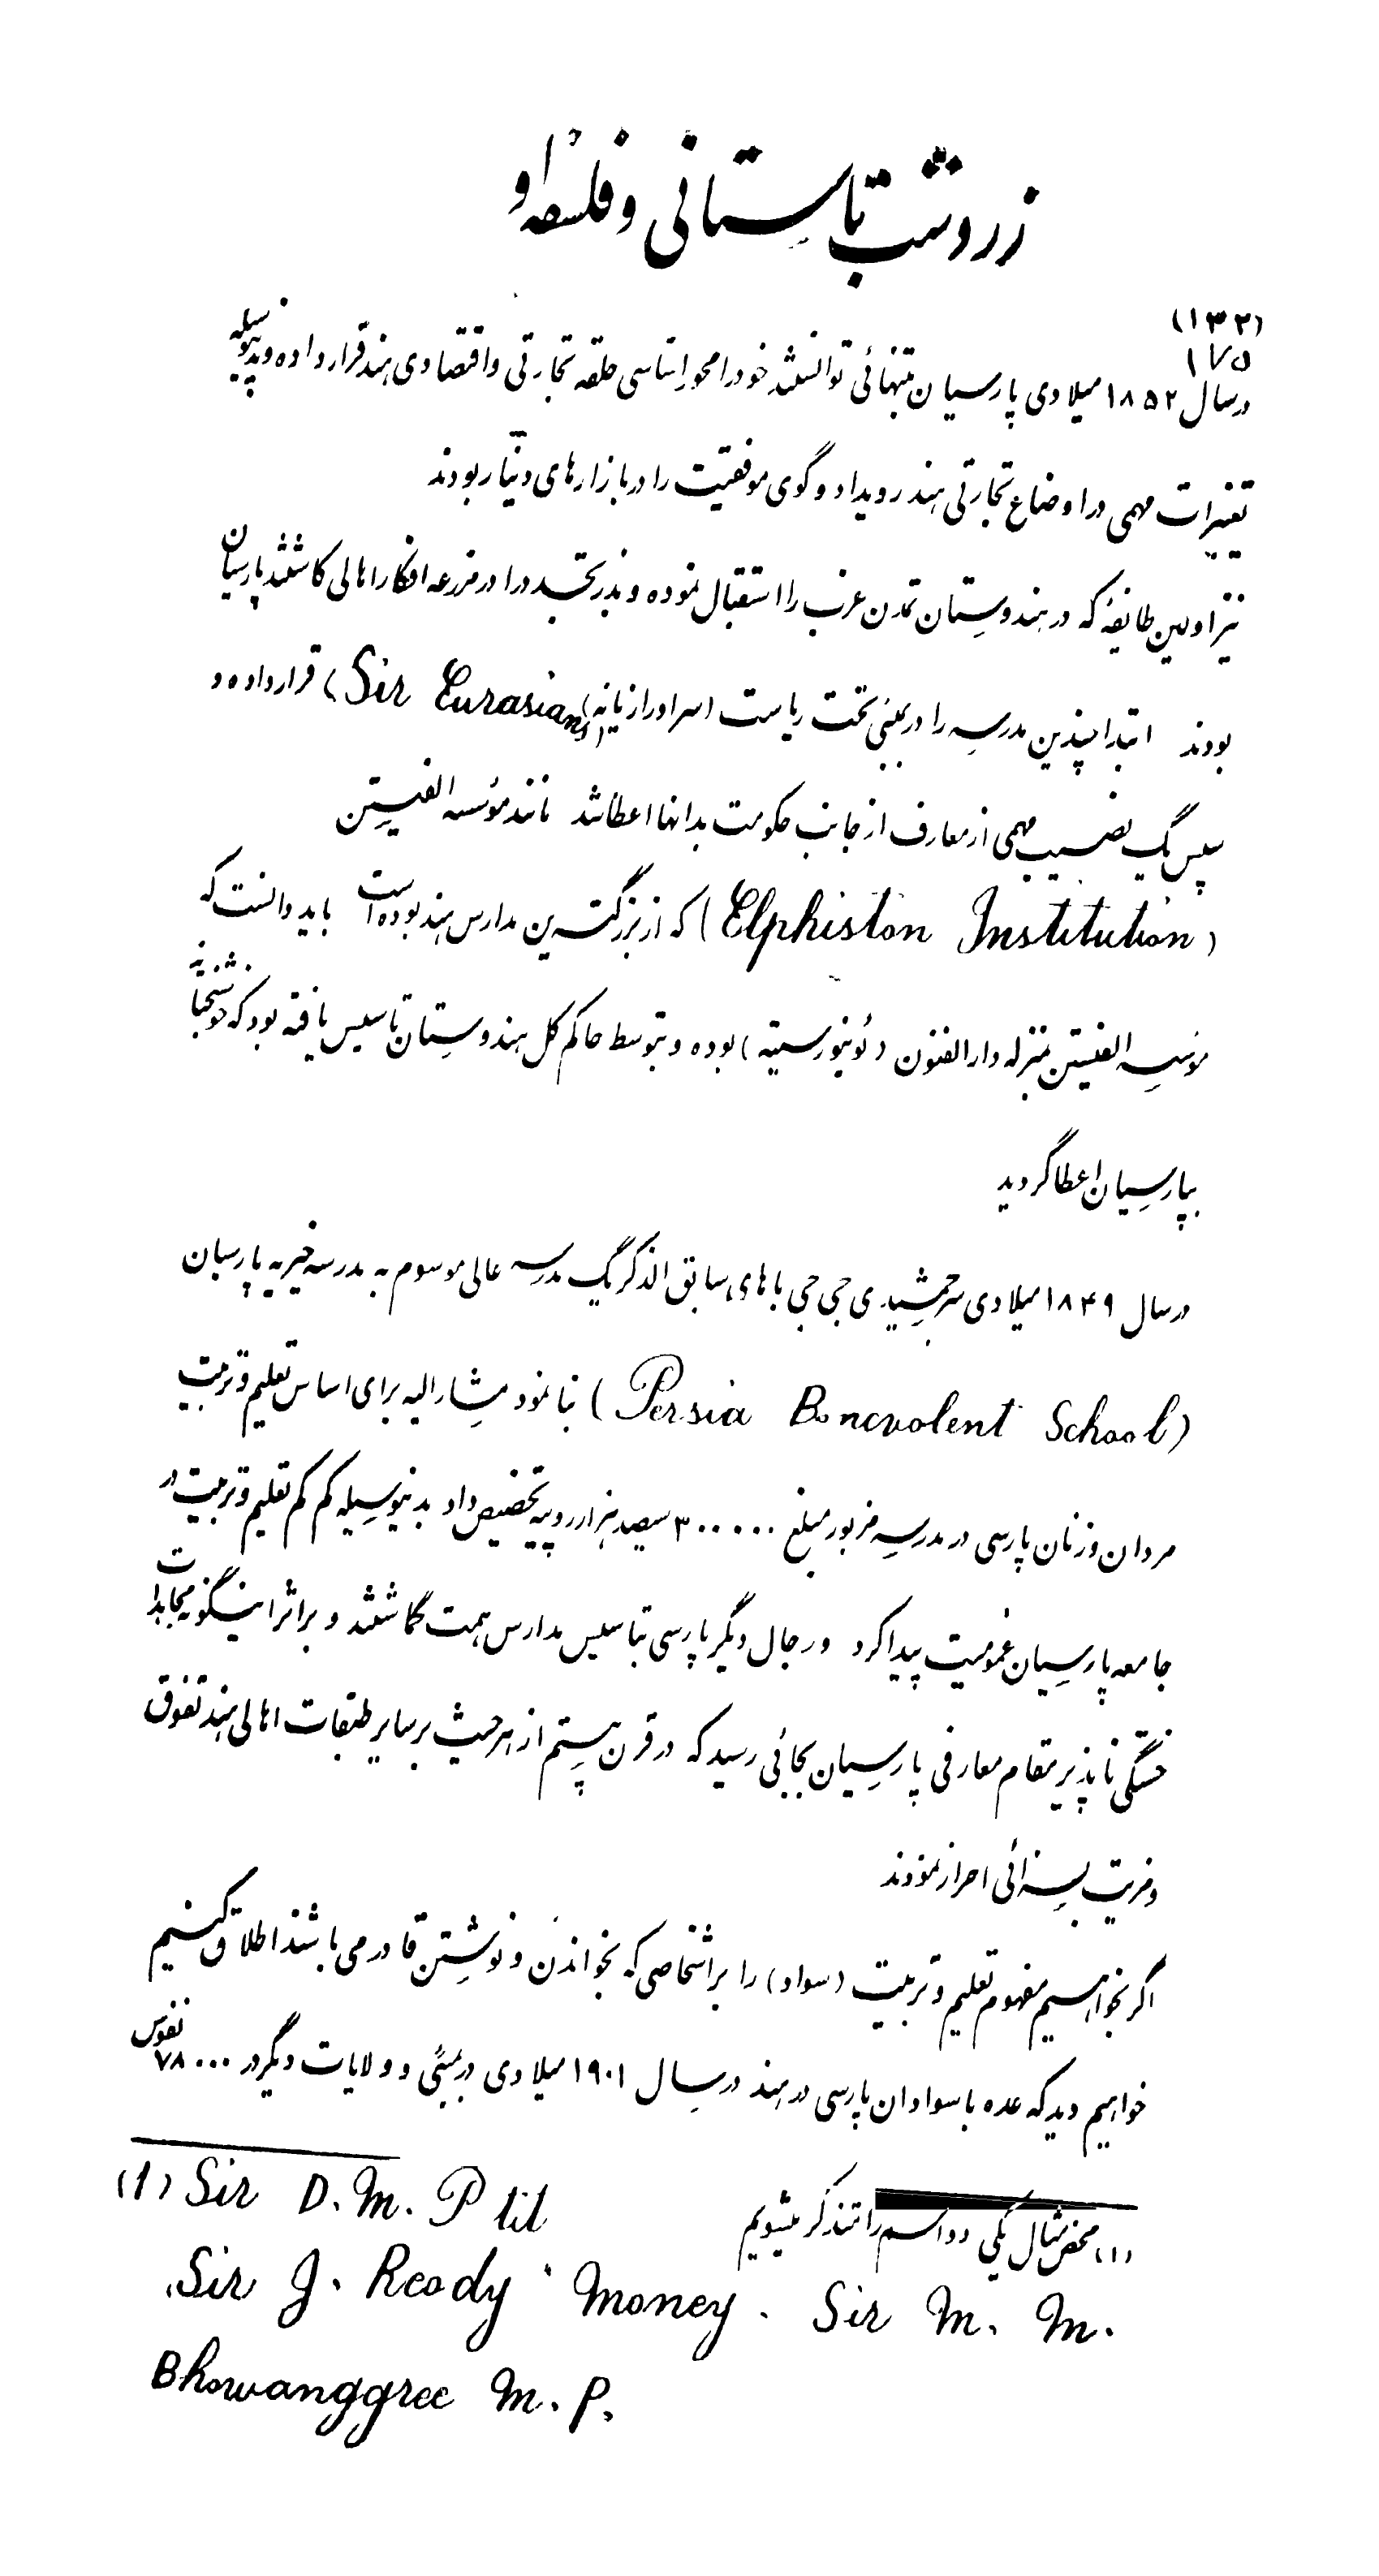 زردشت باستانی و فلسفه او
(۱۳۲)
۱۷۵
درسال ۱۸۵۲ میلادی پارسیان بتنهائی توانستند خود را محور اساسی حلقه تجارتی و اقتصادی هند قرار داده و بدینوسیله
تغییرات مهمی در اوضاع تجارتی هند رویداد و گوی موفقیت را در بازارهای دنیا ربودند
نیز اولین طایفهٔ که در هندوستان تمدن غرب را استقبال نموده و بذر تجدد را در مزرعه افکار اهالی کاشتند پارسیان
بودند ابتدا چندین مدرسه را در بمبئی تحت ریاست (سر اورازیانه) (Sir Eurasians) قرار داده و
سپس یک نصیب مهمی از معارف از جانب حکومت بدانها اعطا شد مانند مؤسسه الفیستن
(Elphiston Institution) که از بزرگترین مدارس هند بوده است باید دانست که
مؤسسه الفیستن بمنزله دارالفنون (ئونیورسیته) بوده و بتوسط حاکم کل هندوستان تاسیس یافته بود که خوشبختانه
بپارسیان اعطا گردید
درسال ۱۸۴۹ میلادی سر جمشیدی جی جی باهای سابق الذکر یک مدرسه عالی موسوم به مدرسه خیریه پارسیان
(Persia Benevolent School) بنا نمود مشارالیه برای اساس تعلیم و تربیت
مردان و زنان پارسی در مدرسه مزبور مبلغ ۳۰۰۰۰۰ سیصد هزار روپیه تخصیص داد بدینوسیله کم کم تعلیم و تربیت در
جامعه پارسیان عمومیت پیدا کرد و رجال دیگر پارسی بتاسیس مدارس همت گماشتند و بر اثر اینگونه مجاهدات
خستگی ناپذیر مقام معارفی پارسیان بجائی رسید که در قرن بیستم از هر حیث بر سایر طبقات اهالی هند تفوق
و مزیت بسزائی احراز نمودند
اگر بخواهیم مفهوم تعلیم و تربیت (سواد) را بر اشخاصی که بخواندن و نوشتن قادر می باشند اطلاق کنیم
خواهیم دید که عده باسوادان پارسی در هند درسال ۱۹۰۱ میلادی در بمبئی و ولایات دیگر در ۷۸۰۰۰ نفوس
(۱) محض مثال یکی دو اسم را متذکر میشویم
(1) Sir D. M. P tit
Sir J. Ready Money . Sir M. M.
Bhowanggree M. P.